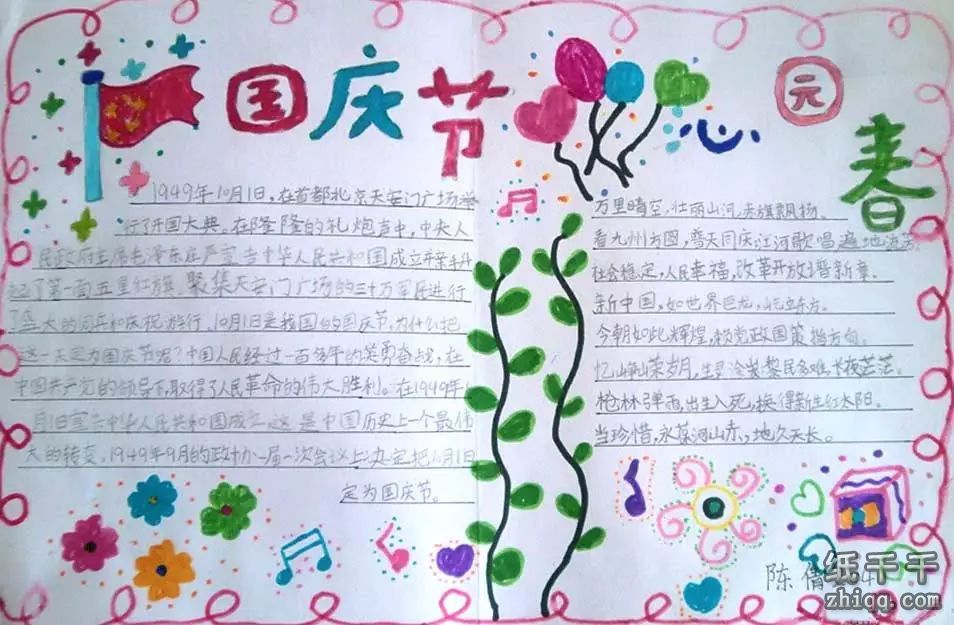 国庆节
1949年10月1日,在首都北京天安门广场举
行了开国大典,在隆隆的礼炮声中,中央人
民政府主席毛泽东庄严宣告中华人民共和国成立并亲手升
起了第一面五星红旗。聚集天安门广场的三十万军民进行
了盛大的阅兵和庆祝游行。10月1日是我国的国庆节,为什么把
这一天定为国庆节呢?中国人民经过一百多年的英勇奋战,在
中国共产党的领导下,取得了人民革命的伟大胜利。在1949年
月1日宣告中华人民共和国成立,这是中国历史上一个最伟
大的转变。1949年9月的政协一届一次会议上决定把10月1日
定为国庆节。
心园春
万里晴空,壮丽山河,赤旗飘扬、
看九州方圆,普天同庆江河歌唱遍地流芳。
社会稳定,人民幸福,改革开放谱新章。
新中国,如世界巨龙,屹立东方。
今朝如此辉煌,赖党政国策指方向。
忆峥嵘岁月,生灵涂炭黎民多难,长夜茫茫。
枪林弹雨,出生入死,换得新生红太阳。
当珍惜,永葆河山赤,地久天长。
陈倩
纸千千
zhiqq.com